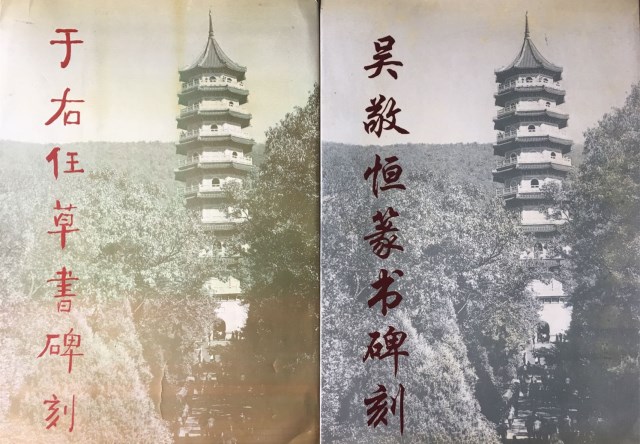 于右任草書碑刻
吴敬恒篆书碑刻